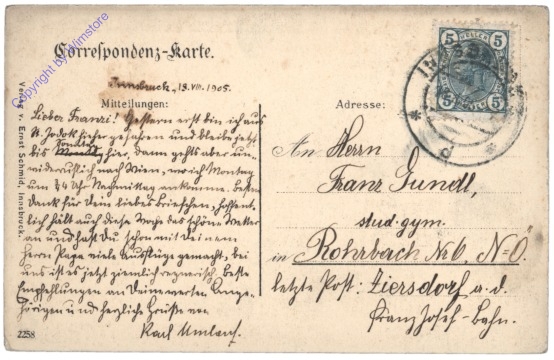 Correspondenz-Karte.
Innsbruck, 19.VIII.1905.
Mitteilungen:
Lieber Franzi! Gestern erst bin ich aus
St. Jodok hieher gefahren und bleibe jetzt
bis Sonntag hier, dann gehts aber un-
widerruflich nach Wien, wo ich Montag
um ¾4 Uhr Nachmittag ankomme. Besten
Dank für Dein liebes Briefchen, hoffent-
lich hält auch diese Woche das schöne Wetter
an und hast Du schon mit Deinem
Herrn Papa viele Ausflüge gemacht; bei
uns ist es jetzt ziemlich regnerisch. Beste
Empfehlungen an Deine werten Ange-
hörigen und herzliche Grüße von
Karl Umlauf.
Adresse:
An Herrn
Franz Gundl,
stud. gym.
in Rohrbach No 6, N=Ö.
letzte Post: Ziersdorf a. d.
Franz Josef-Bahn.
5 HELLER 5
5 5
Verlag v. Ernst Schmid, Innsbruck.
2258
Copyright by Wimstore